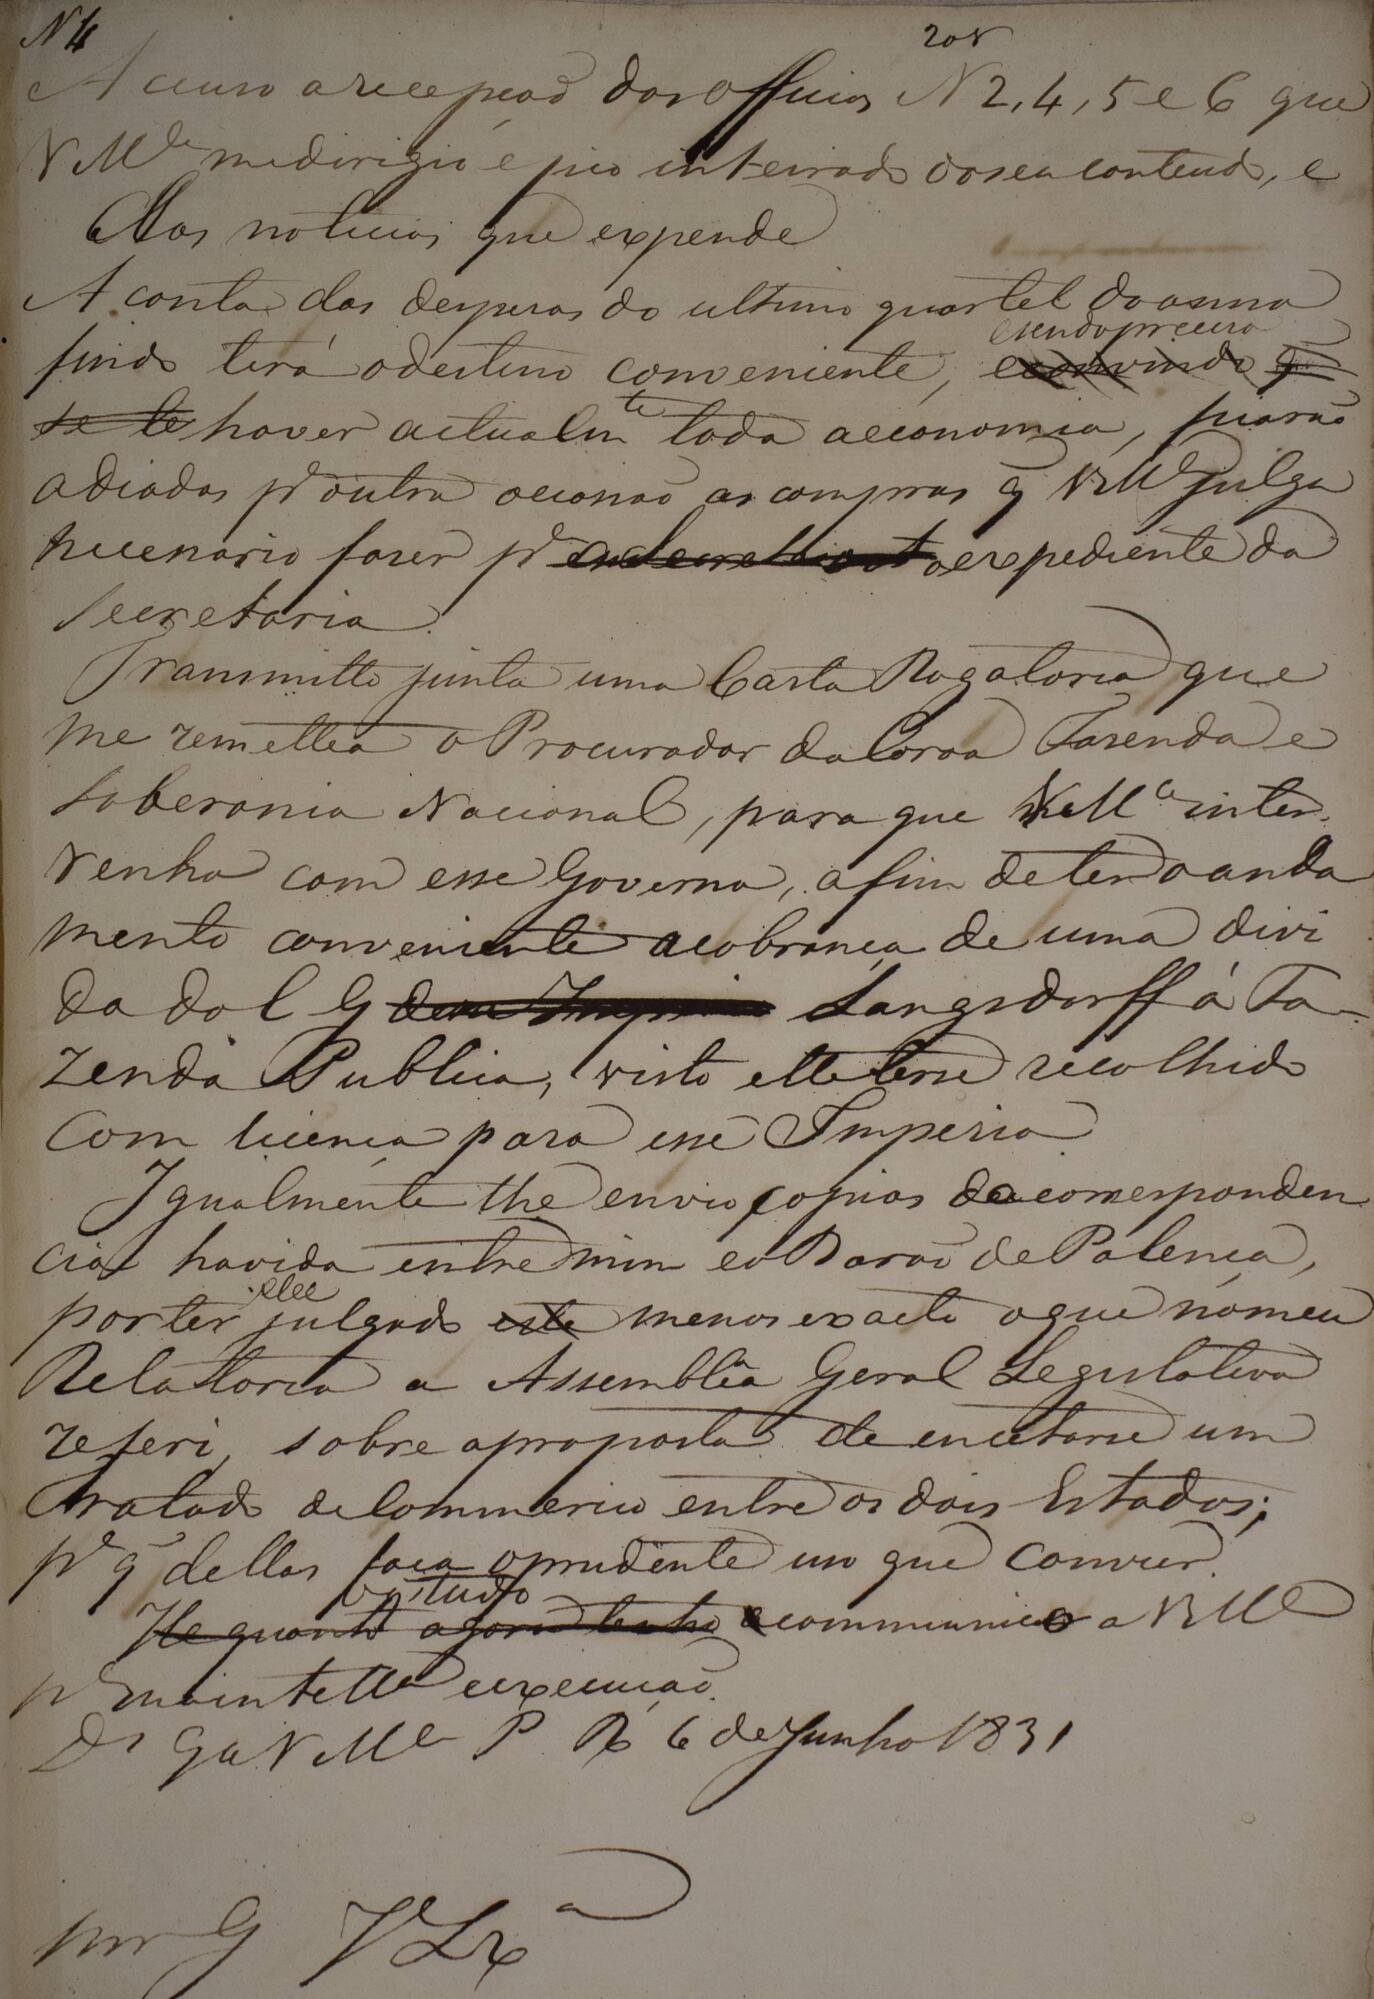 N 4
208
Accuso a recepção dos Officios N 2, 4, 5 e 6 que
V Mce me dirigio e fico inteirado do seu contendo, e
das noticias que expende
A conta das despezas do ultimo quartel do anno
findo terá o destino conveniente, econvindo q
esendo preciso
se te haver actualmte toda a economia, ficarão
adiadas pa outra occasião as compras q V Mce julga
necessario fazer pa o expediente da
Secretaria.
Transmitto junta uma Carta Rogatoria que
me remetteo o Procurador da Coroa Fazenda e
Soberania Nacional, para que V Mce inter
venha com esse Governo, a fim de ter o anda
mento conveniente a cobrança de uma divi
da do C G de Langsdorff á Fa-
zenda Publica, visto elle terse recolhido
com licença para esse Imperio
Igualmente lhe envio copias da corresponden
cia havida entre mim e o Barão de Palença,
por ter elle julgado este menos exacto o que no meu
Relatorio a Assemblêa Geral Legislativa
referi, sobre a proposta de encetarse um
Tratado de Commercio entre os dois Estados;
pa q dellas faça o prudente uso que convier.
o q tudo
He quanto agora tenho a communico a V Mce
pa sua intella e execução.
Ds Gu V Mce P R 6 de Junho 1831
por G